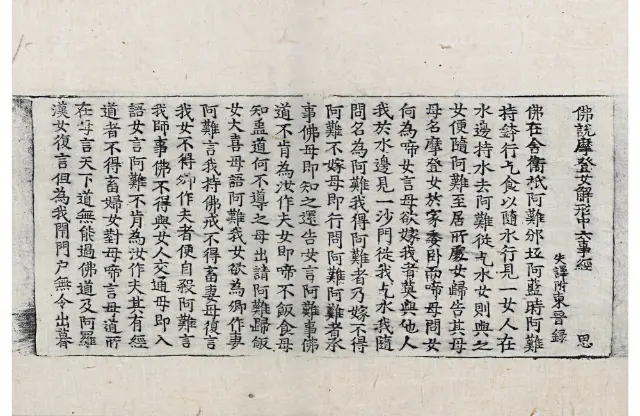 佛說摩登女解形中六事經
失譯附東晉錄 思
佛在舍衛祇阿難邠坻阿藍時阿難
持鉢行乞食以隨水行見一女人在
水邊持水去阿難從乞水女則與之
女便隨阿難至居所處女歸告其母
母名摩登女於家委卧而啼母問女
何為啼女言母欲嫁我者莫與他人
我於水邊見一沙門從我乞水我隨
問名為阿難我得阿難者乃嫁不得
阿難不嫁母即行問阿難阿難者承
事佛母即知之還告女言阿難事佛
道不肯為汝作夫女即啼不飯食母
知蠱道何不導之母出請阿難歸飯
女大喜母語阿難我女欲為卿作妻
阿難言我持佛戒不得畜妻母復言
我女不得卿作夫者便自殺阿難言
我師事佛不得與女人交通母即入
語女言阿難不肯為汝作夫其有經
道者不得畜婦女對母啼言母道所
在母言天下道無能過佛道及阿羅
漢女復言但為我閉門户無令出暮